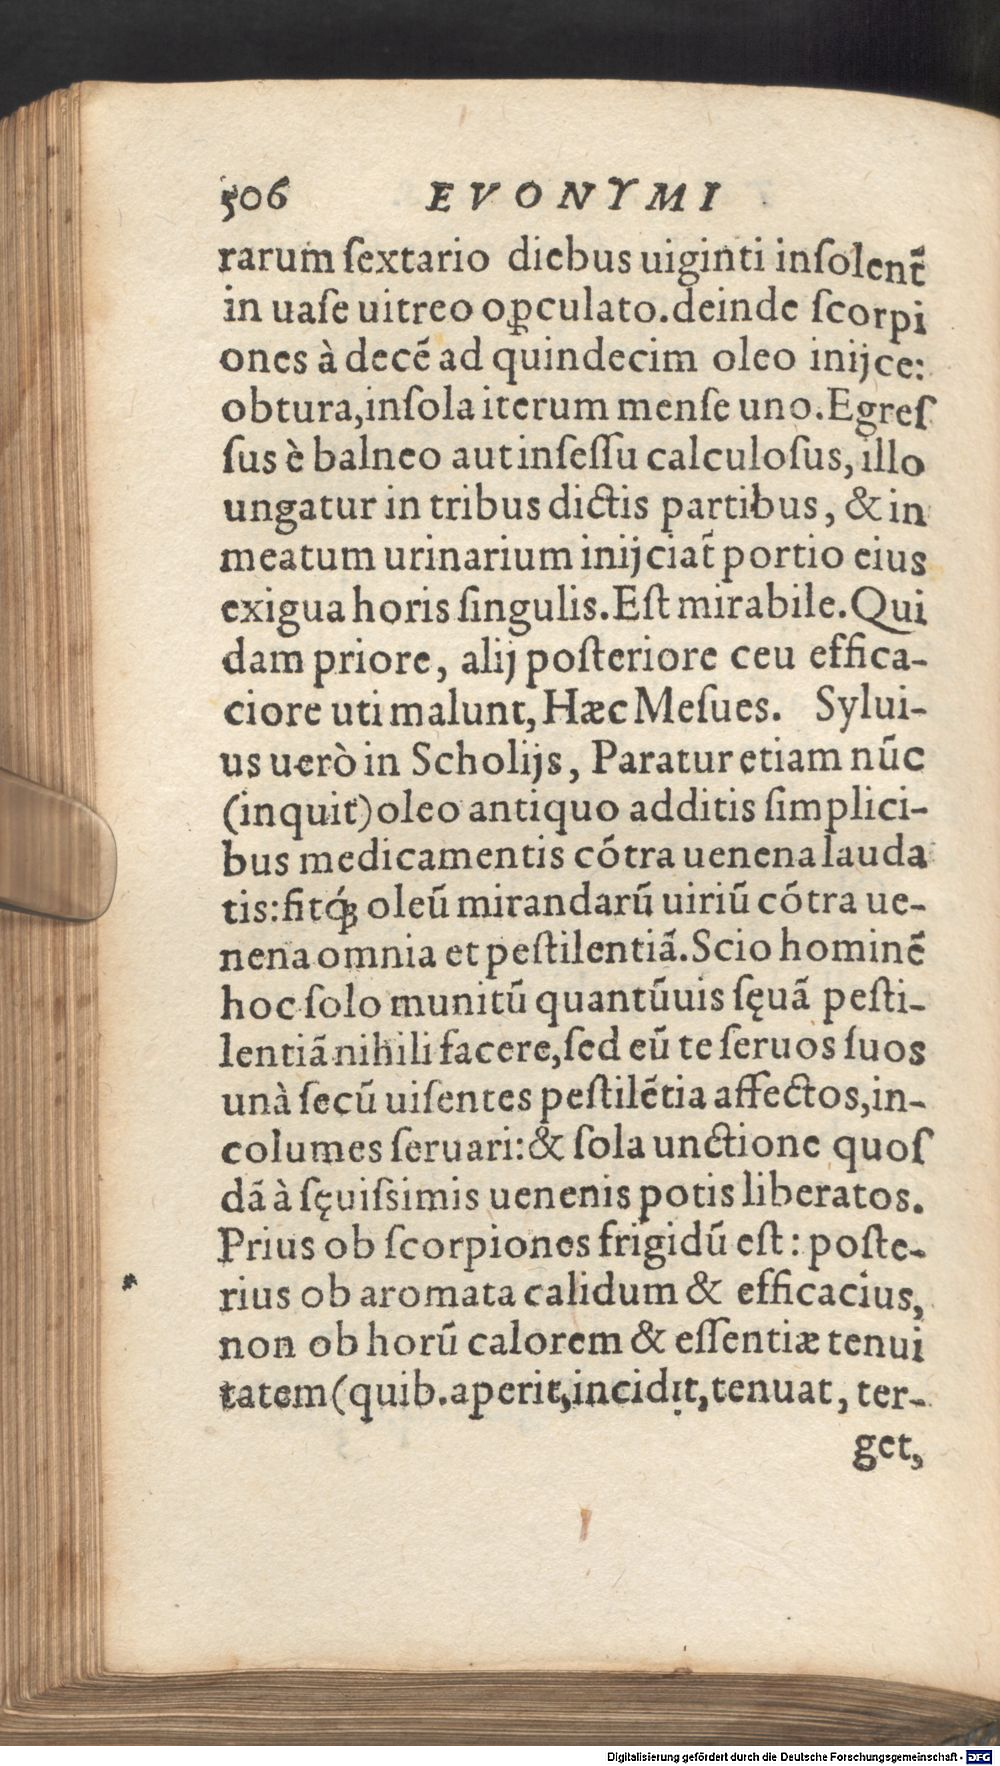 506 EVONYMI
rarum ſextario diebus uiginti inſolent̃
in uaſe uitreo oꝑculato. deinde ſcorpi
ones à decẽ ad quindecim oleo inijce:
obtura, inſola iterum menſe uno. Egreſ
ſus è balneo aut inſeſſu calculoſus, illo
ungatur in tribus dictis partibus, & in
meatum urinarium inijciat̃ portio eius
exigua horis ſingulis. Eſt mirabile. Qui
dam priore, alij poſteriore ceu effica-
ciore uti malunt, Hæc Meſues. Sylui-
us uerò in Scholijs, Paratur etiam nũc
(inquit) oleo antiquo additis ſimplici-
bus medicamentis cõtra uenena lauda
tis: fitq́ꝫ oleũ mirandarũ uiriũ cõtra ue-
nena omnia et peſtilentiã. Scio hominẽ
hoc ſolo munitũ quantũuis ſęuã peſti-
lentiã nihili facere, ſed eũ te ſeruos ſuos
unà ſecũ uiſentes peſtilẽtia affectos, in-
columes ſeruari: & ſola unctione quoſ
dã à ſęuiſsimis uenenis potis liberatos.
Prius ob ſcorpiones frigidũ eſt: poſte-
rius ob aromata calidum & efficacius,
non ob horũ calorem & eſſentiæ tenui
tatem (quib. aperit, incidit, tenuat, ter-
get,
Digitalisierung gefördert durch die Deutsche Forschungsgemeinschaft - DFG